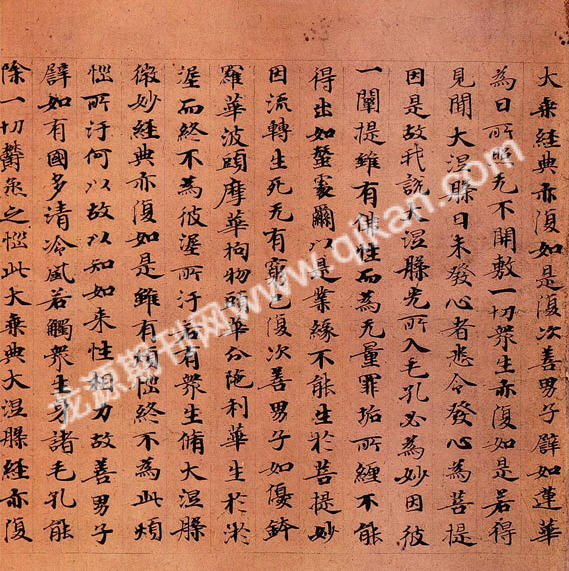 大乘經典亦復如是復次善男子譬如蓮華
為日所照无不開敷一切衆生亦復如是若得
見聞大涅槃日未發心者悉令發心為菩提
因是故我說大涅槃光所入毛孔必為妙因彼
一闡提雖有佛性而為无量罪垢所纏不能
得出如蠶處繭以是業緣不能生於菩提妙
因流轉生死无有窮已復次善男子如優鉢
羅華波頭摩華拘物頭華分陁利華生於淤
涅而終不為彼涅所汙若有衆生脩大涅槃
微妙經典亦復如是雖有煩惱終不為此煩
惱所汙何以故以知如來性相力故善男子
譬如有國多清冷風若觸衆生身諸毛孔能
除一切欝蒸之惱此大乘典大涅槃經亦復
龙源期刊网www.qikan.com